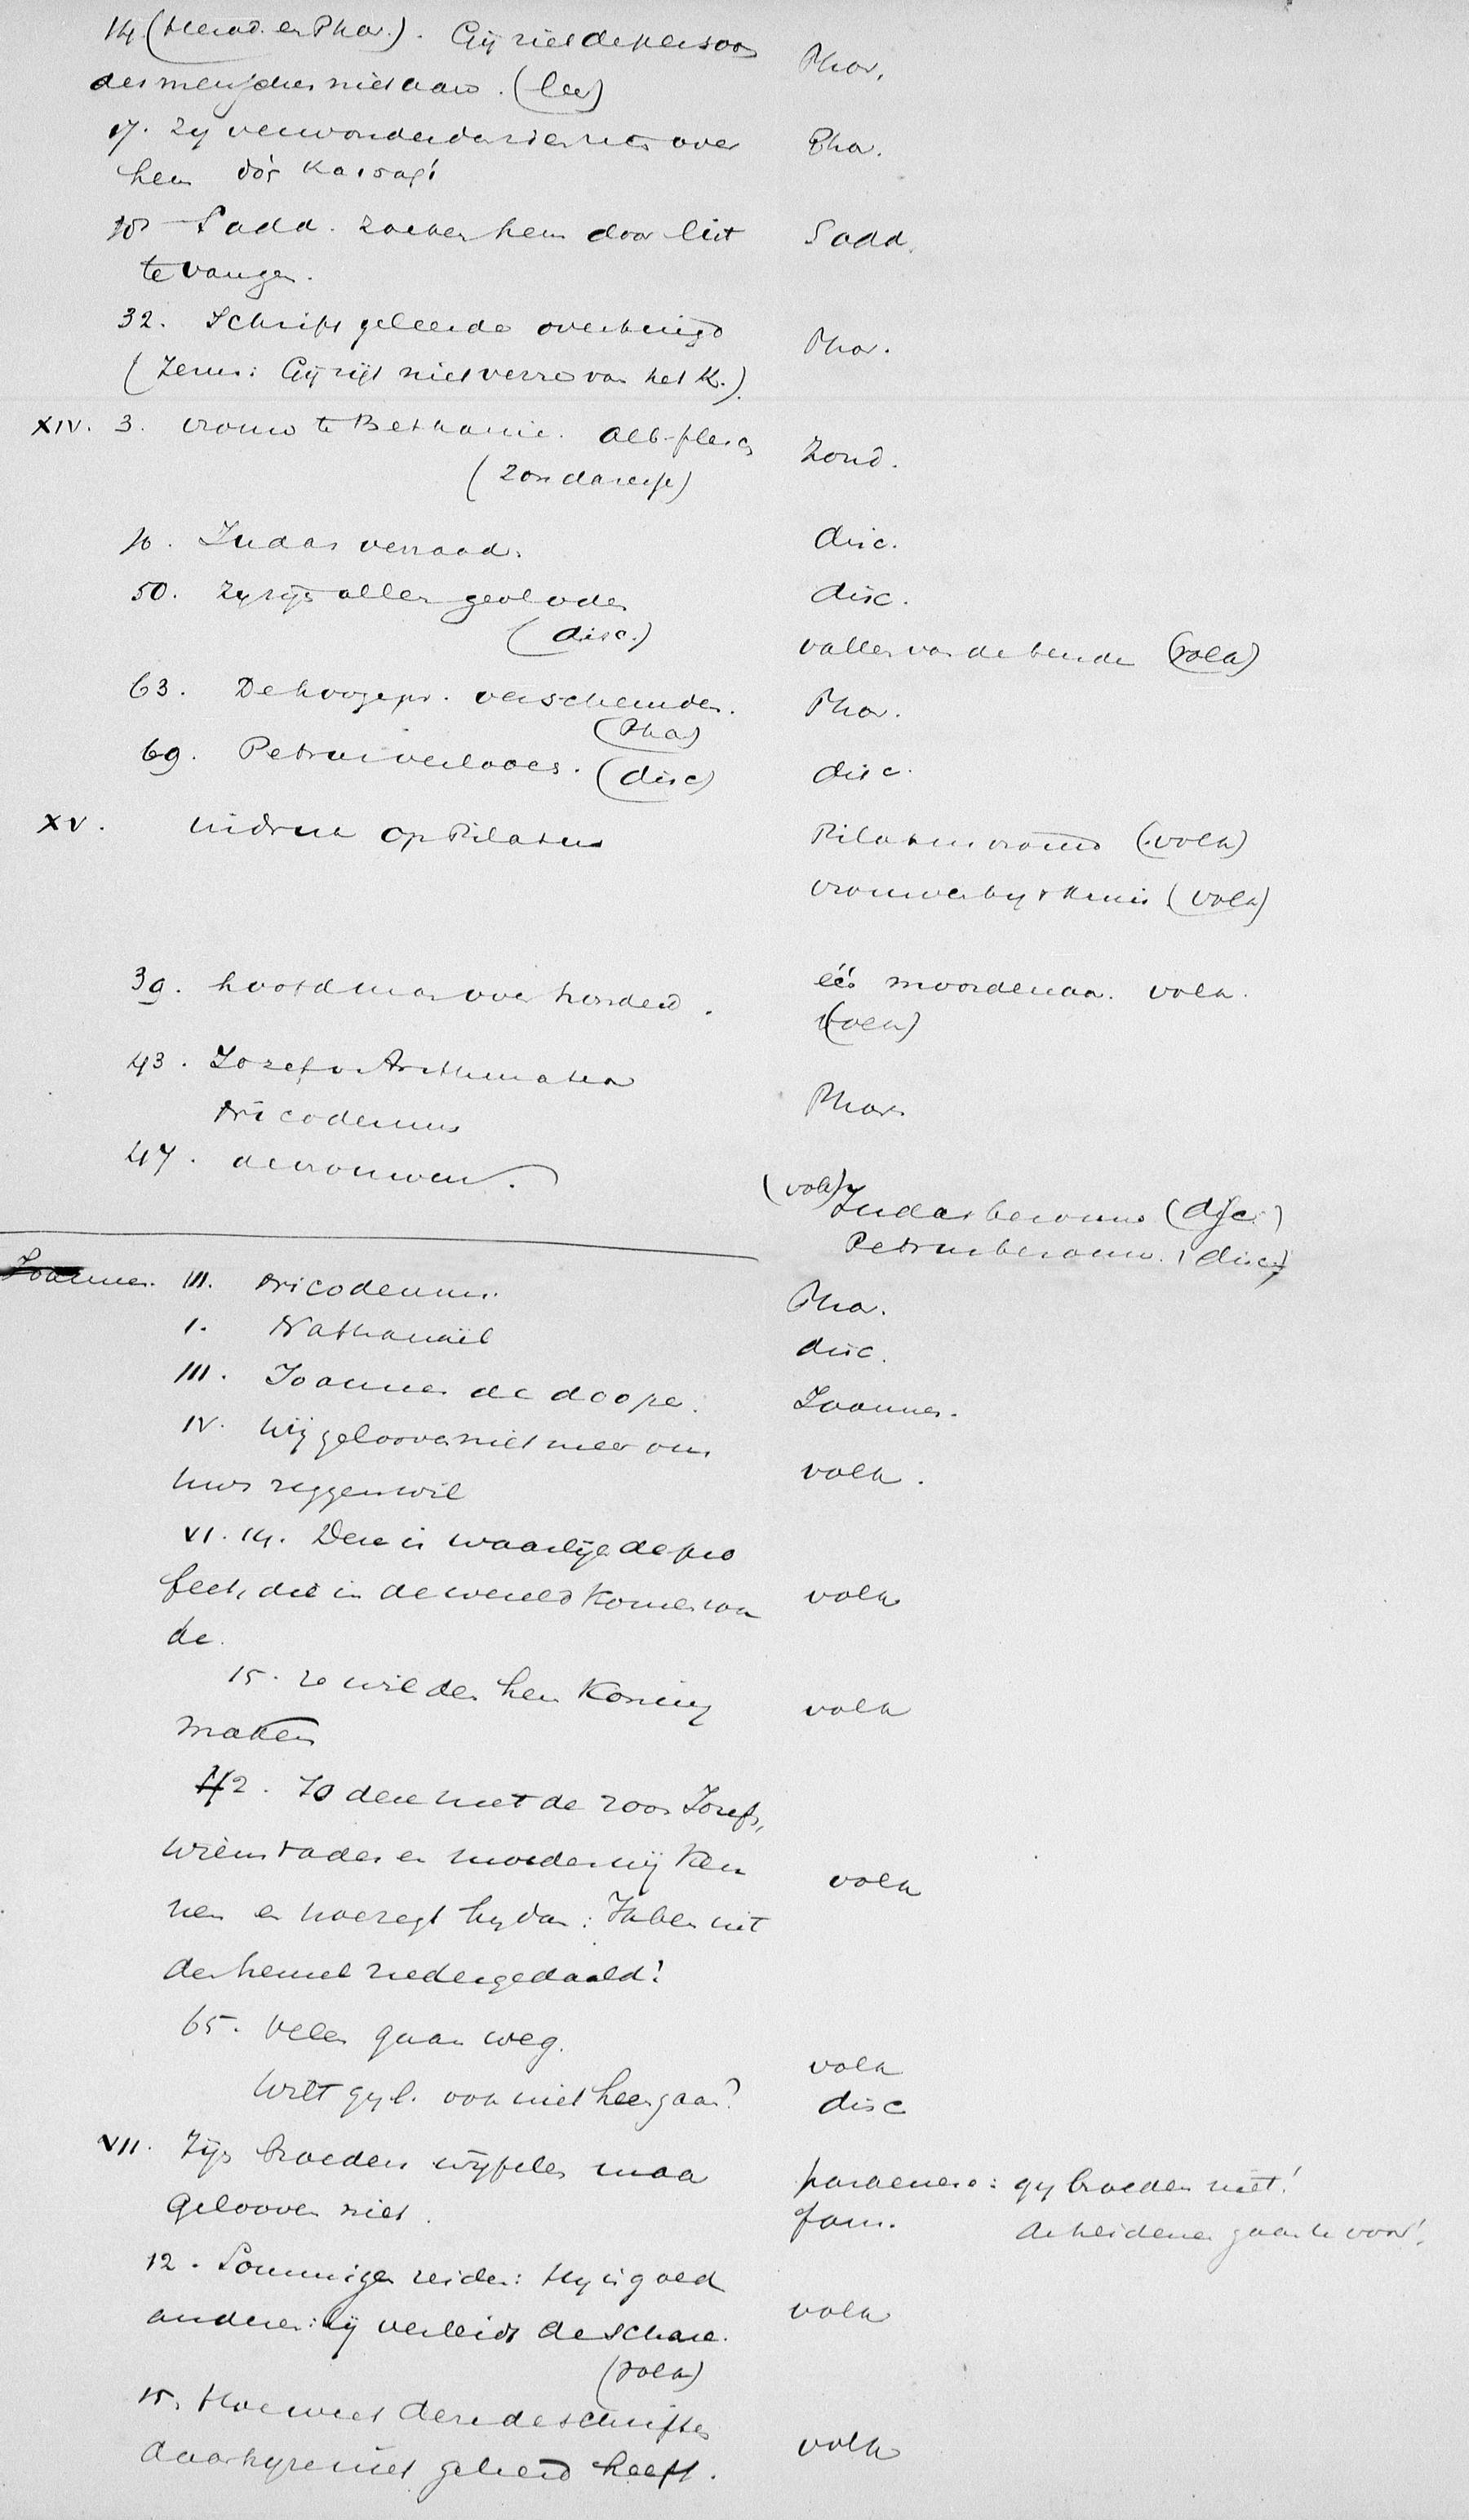 14. (Herod. en Phar.). Gij ziet de persoon
des menschen niet aan. (leer) Phar.
17. Zij verwonderden zich zeer over
hem Phar.
18 Sadd. zoeken hem door list Sadd.
te vangen.
32. Schriftgeleerde overtuigd
(Jezus: Gij zijt niet verre van het K.) Phar.
XIV. 3. vrouw te Bethanië. alb. flesch
(zondares) Zond.
10. Judas verraad. disc.
50. Zij zijn allen gevloden disc.
(disc.) vallen van de bende (volk)
63. De hoogepr. verscheurde. Phar.
(Phar)
69. Petrus verlooch. (disc) disc.
XV. indruk op Pilatus Pilatus vrouw (volk)
vrouwen bij 't kruis (volk)
39. hoofdman over honderd. één moordenaar. volk.
(volk)
43. Jozef v. Arithmathea
Nicodemus Phar.
47. de vrouwen. (volk)
Judas berouw (disc.)
Petrus berouw. (disc.)
Joannes. III. Nicodemus. Phar.
I. Nathanaël disc.
III. Joannes de dooper. Joannes.
IV. Wij gelooven niet meer om
uws zeggens wil volk.
VI. 14. Deze is waarlijk de pro
feet, die in de wereld komen zou volk
de.
15. ze wilden hem Koning
maken volk
42. Is deze niet de zoon Jozefs,
wiens vader en moeder wij ken
nen en hoe zegt hij dan: Ik ben uit volk
den hemel nedergedaald!
65. Velen gaan weg. volk
Wilt gijl. ook niet heengaan? disc
VII. Zijn broeders twijfelen maar
gelooven niet. paraenese: gij broeders niet!
fam. de heidenen gaan u voor!
12. Sommigen zeiden: Hij is goed
anderen: hij verleidt de schare. volk
(volk)
15. Hoe weet deze de schriften
daar hij ze niet geleerd heeft. volk